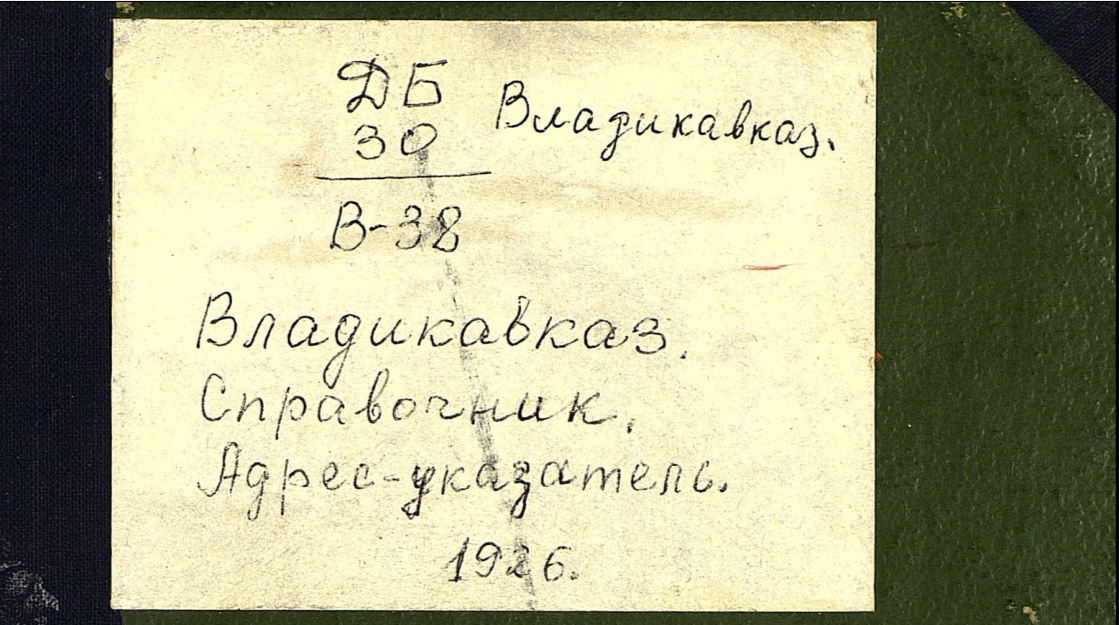 ДБ
30
В-38
Владикавказ.
Владикавказ.
Справочник.
Адрес-указатель.
1926.